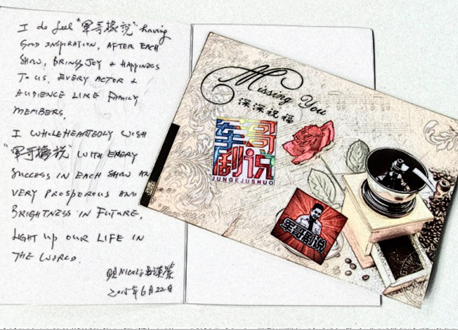 I do feel "军哥據说" having
good inspiration, after each
show, brings joy & happiness
to us. every actor &
audience like family
members.
I wholeheartedly wish
"军哥據说" with every
success in each show
very prosperous and
brightness in future,
light up our life in
the world.
Missing You
深深祝福
军哥
剧说
JUNGEJUSHUO
军哥剧说